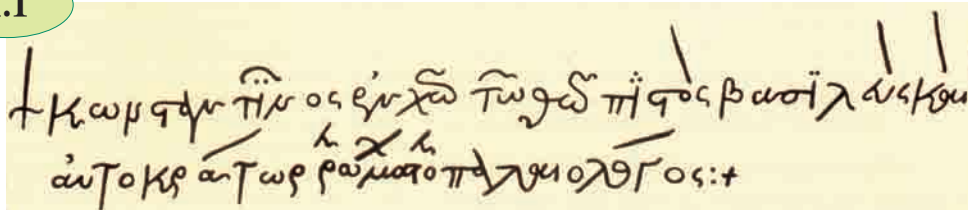 .1
+ κωνσταντῖνος ἐν χῶ τῶ θῶ πϊστὸς βασϊλεὺς καὶ
αὐτοκράτωρ ῥωμαίων ὁ παλαιολόγος:+